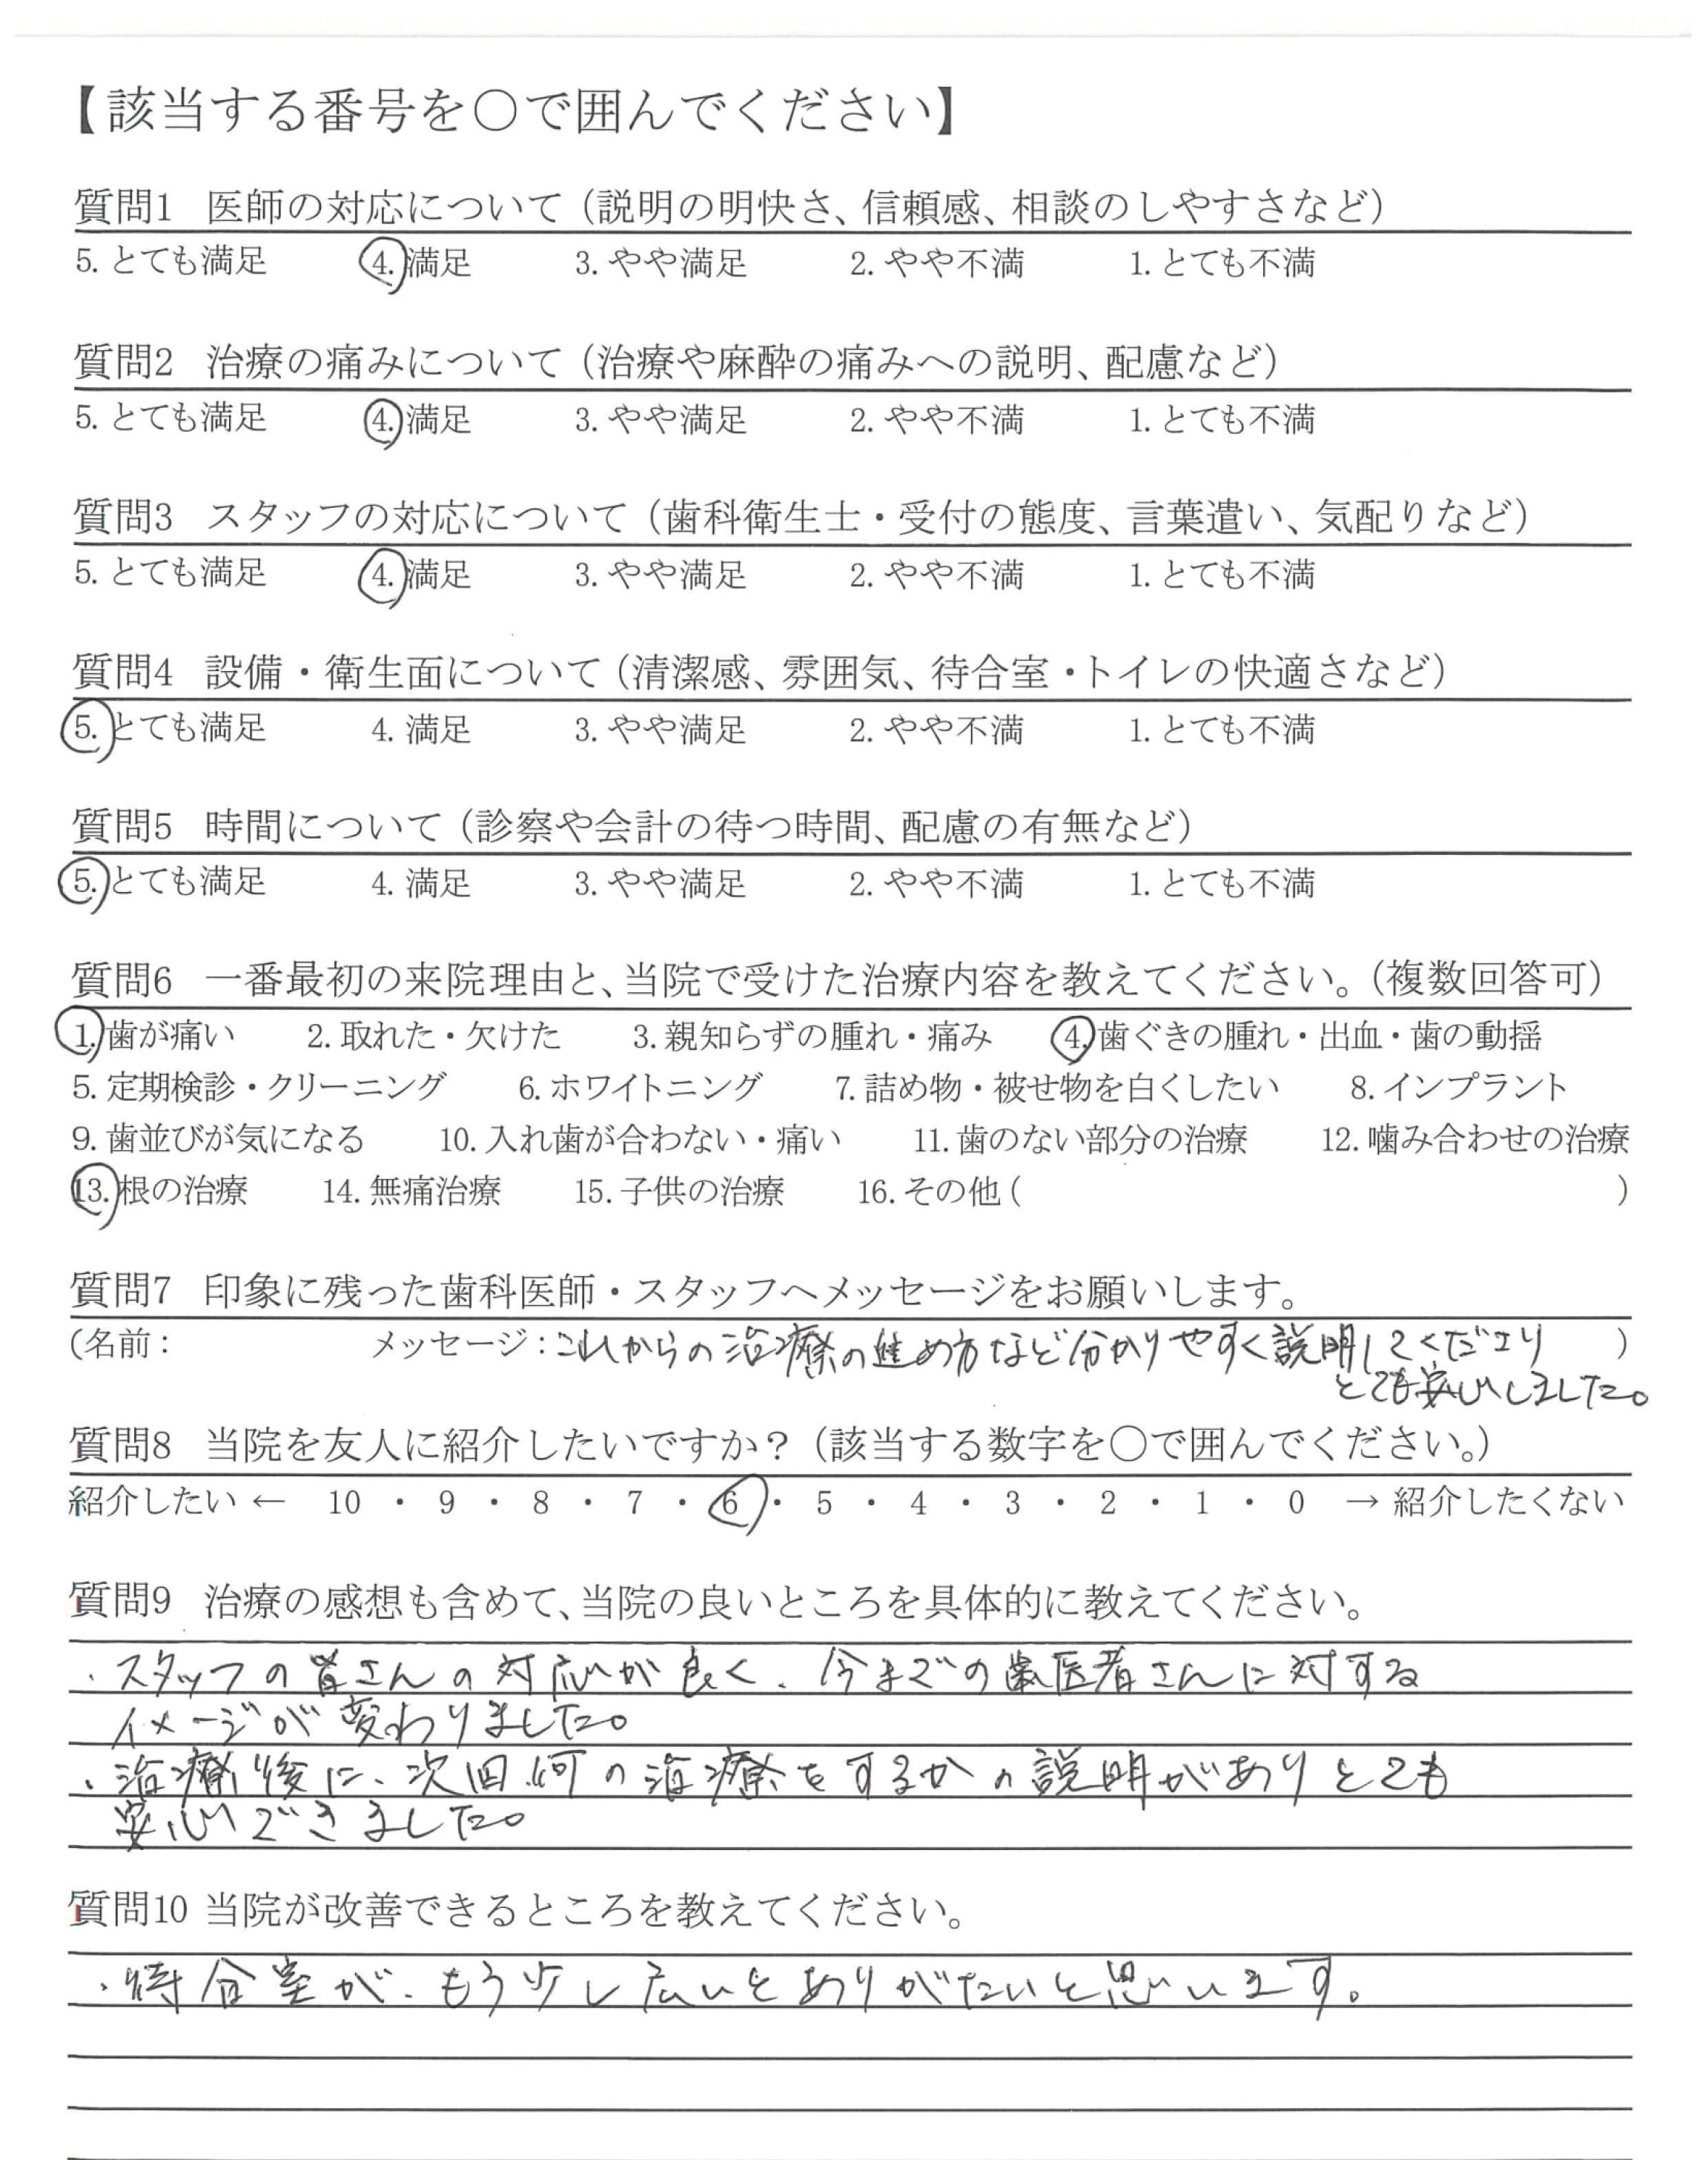 【該当する番号を○で囲んでください】
質問1 医師の対応について（説明の明快さ、信頼感、相談のしやすさなど）
5. とても満足 4. 満足 3. やや満足 2. やや不満 1. とても不満
質問2 治療の痛みについて（治療や麻酔の痛みへの説明、配慮など）
5. とても満足 4. 満足 3. やや満足 2. やや不満 1. とても不満
質問3 スタッフの対応について（歯科衛生士・受付の態度、言葉遣い、気配りなど）
5. とても満足 4. 満足 3. やや満足 2. やや不満 1. とても不満
質問4 設備・衛生面について（清潔感、雰囲気、待合室・トイレの快適さなど）
5. とても満足 4. 満足 3. やや満足 2. やや不満 1. とても不満
質問5 時間について（診察や会計の待つ時間、配慮の有無など）
5. とても満足 4. 満足 3. やや満足 2. やや不満 1. とても不満
質問6 一番最初の来院理由と、当院で受けた治療内容を教えてください。（複数回答可）
1. 歯が痛い 2. 取れた・欠けた 3. 親知らずの腫れ・痛み 4. 歯ぐきの腫れ・出血・歯の動揺
5. 定期検診・クリーニング 6. ホワイトニング 7. 詰め物・被せ物を白くしたい 8. インプラント
9. 歯並びが気になる 10. 入れ歯が合わない・痛い 11. 歯のない部分の治療 12. 噛み合わせの治療
13. 根の治療 14. 無痛治療 15. 子供の治療 16. その他（ ）
質問7 印象に残った歯科医師・スタッフへメッセージをお願いします。
（名前： メッセージ：これからの治療の進め方など分かりやすく説明してくださり ）
とても安心しました。
質問8 当院を友人に紹介したいですか？（該当する数字を○で囲んでください。）
紹介したい ← 10 ・ 9 ・ 8 ・ 7 ・ 6 ・ 5 ・ 4 ・ 3 ・ 2 ・ 1 ・ 0 → 紹介したくない
質問9 治療の感想も含めて、当院の良いところを具体的に教えてください。
・スタッフの皆さんの対応が良く、今までの歯医者さんに対する
イメージが変わりました。
・治療後に、次回何の治療をするかの説明がありとても
安心できました。
質問10 当院が改善できるところを教えてください。
・待合室が、もう少し広いとありがたいと思います。